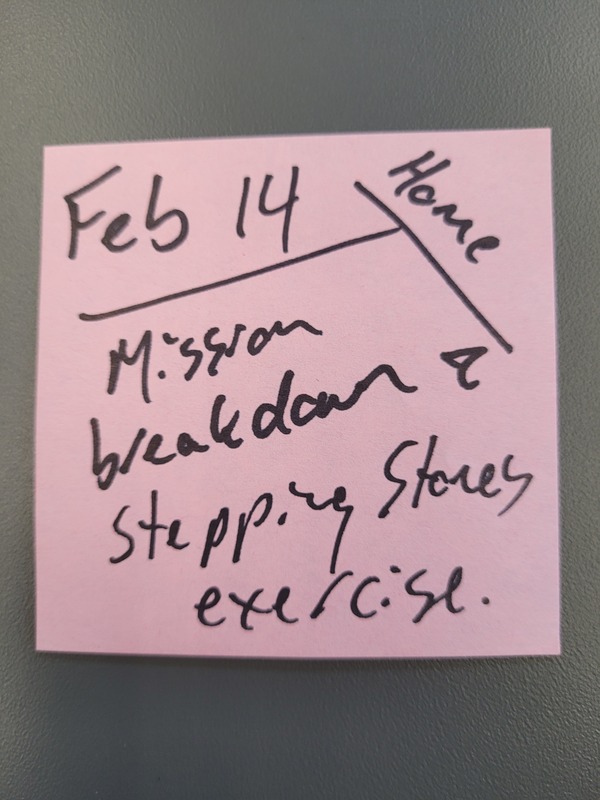 Feb 14
Home
Mission
breakdown &
Stepping Stones
exercise.